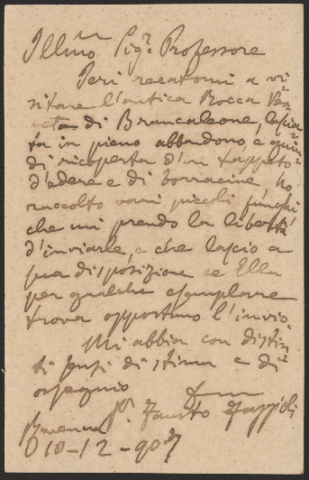 Illmo Sigr. Professore
Ieri recatomi a vi=
sitare l'antica Rocca Ven
di Brancaleone, lascia=
ta in pieno abbandono, e quin=
di ricoperta d'un tappeto
d'edere e di borracine, ho
raccolto varii piccoli funghi
che mi prendo la libertà
d'inviarle, e che lascio a
sua disposizione se Ella
per qualche esemplare
trova opportuno l'invio.
Mi abbia con distin=
ti sensi di stima e di
ossequio
Fausto
Ravenna
10-12-907